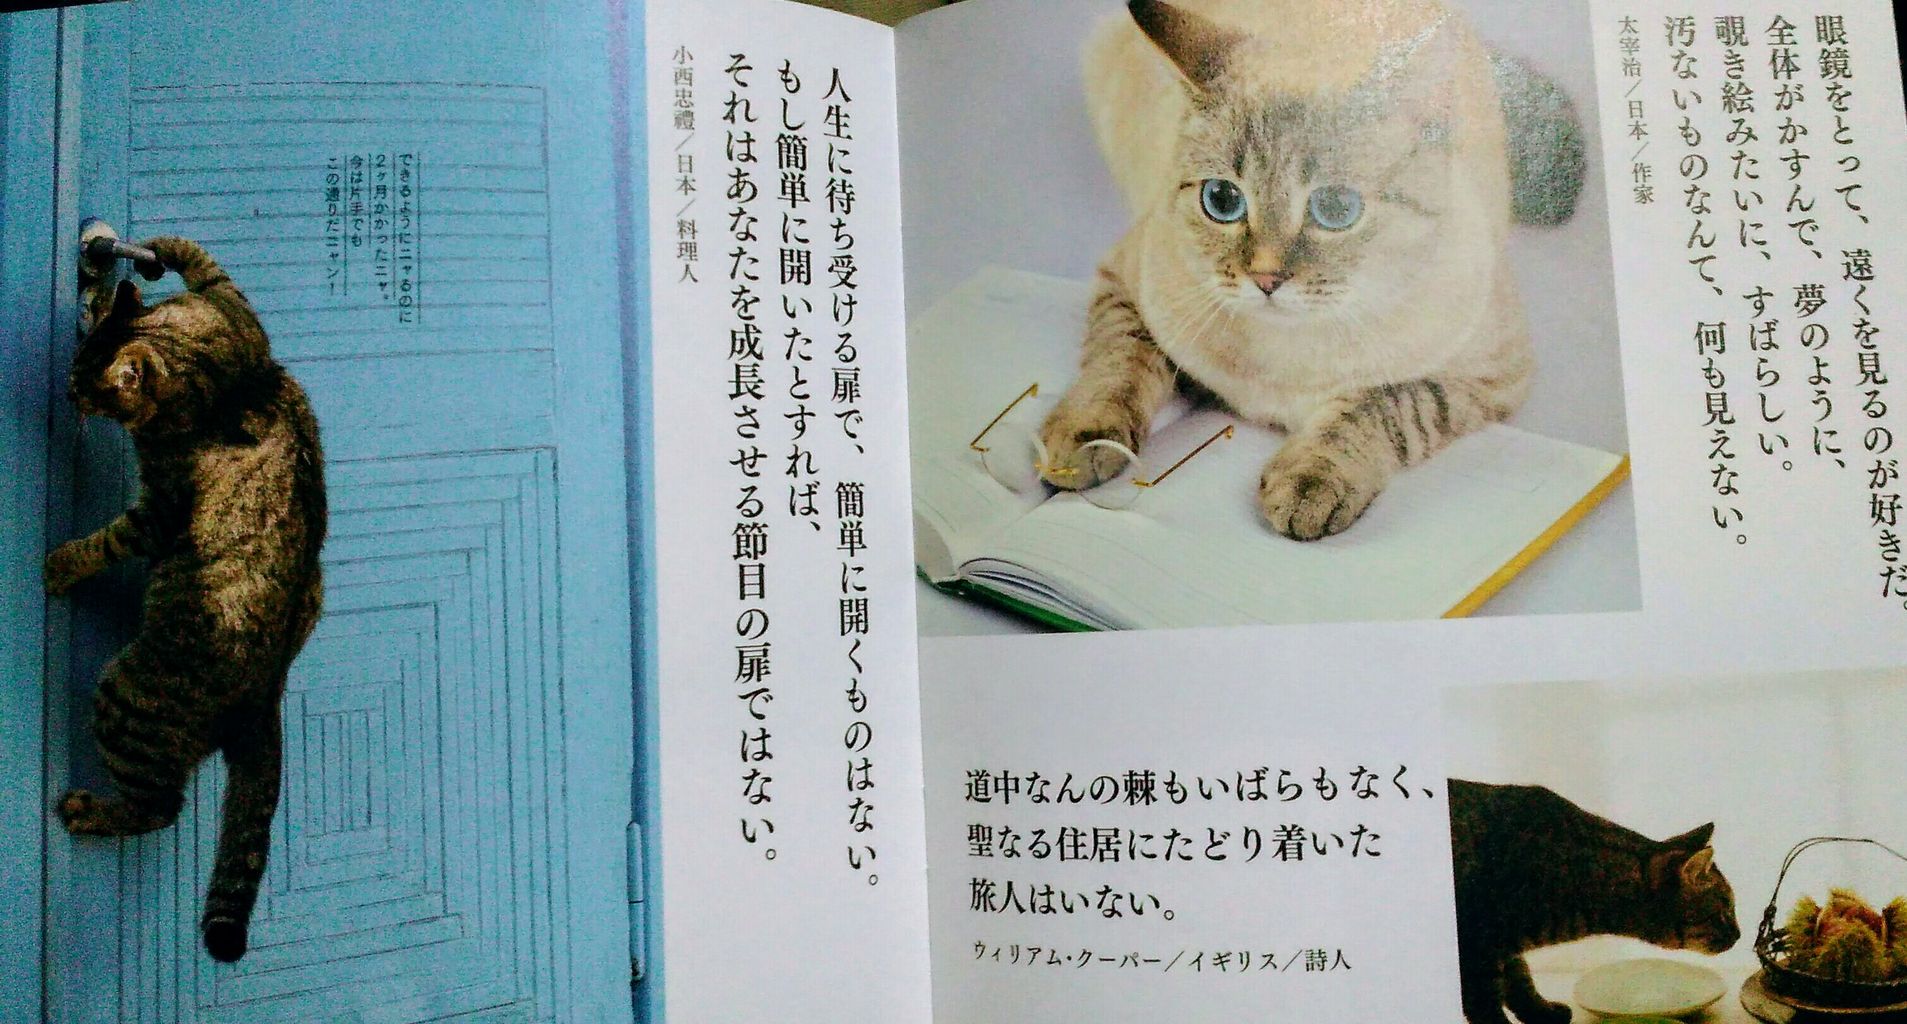 眼鏡をとって、遠くを見るのが好きだ。
全体がかすんで、夢のように、
覗き絵みたいに、すばらしい。
汚ないものなんて、何も見えない。
太宰治／日本／作家
道中なんの棘もいばらもなく、
聖なる住居にたどり着いた
旅人はいない。
ウィリアム・クーパー／イギリス／詩人
人生に待ち受ける扉で、簡単に開くものはない。
もし簡単に開いたとすれば、
それはあなたを成長させる節目の扉ではない。
小西忠禮／日本／料理人
できるようにニャるのに
2ヶ月かかったニャ。
今は片手でも
この通りだニャン！